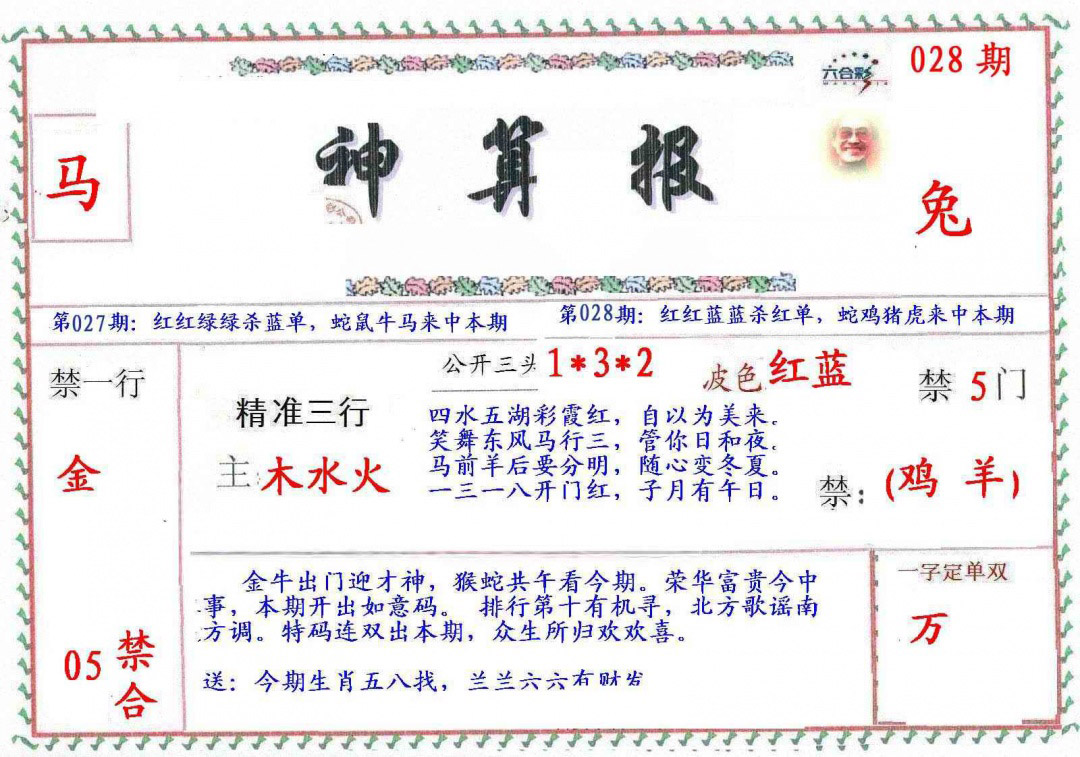 六合彩
028期
神算报
马
兔
第027期：红红绿绿杀蓝单，蛇鼠牛马来中本期
第028期：红红蓝蓝杀红单，蛇鸡猪虎来中本期
禁一行
金
05
禁合
精准三行
主:木水火
公开三头 1*3*2
波色 红蓝
四水五湖彩霞红，自以为美来。
笑舞东风马行三，管你日和夜。
马前羊后要分明，随心变冬夏。
一三一八开门红，子月有午日。
禁5门
禁：(鸡 羊)
金牛出门迎才神，猴蛇共午看今期。荣华富贵今中
事，本期开出如意码。 排行第十有机寻，北方歌谣南
方调。特码连双出本期，众生所归欢欢喜。
送：今期生肖五八找，兰兰六六有财发
一字定单双
万